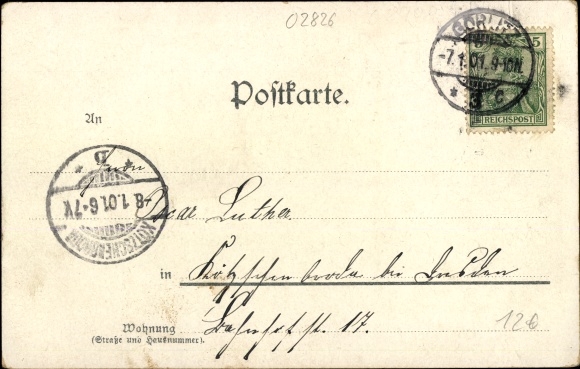 02826
GÖRLITZ
-7.1.01. 9-10N.
* 3 c
5
REICHSPOST
Postkarte.
An
Herrn
Oscar Luther.
* d *
-8.1.01. 6-7V.
KÖTZSCHENBRODA
in Kötzschenbroda bei Dresden
Wohnung
(Straße und Hausnummer).
Bahnhofst. 17.
12€